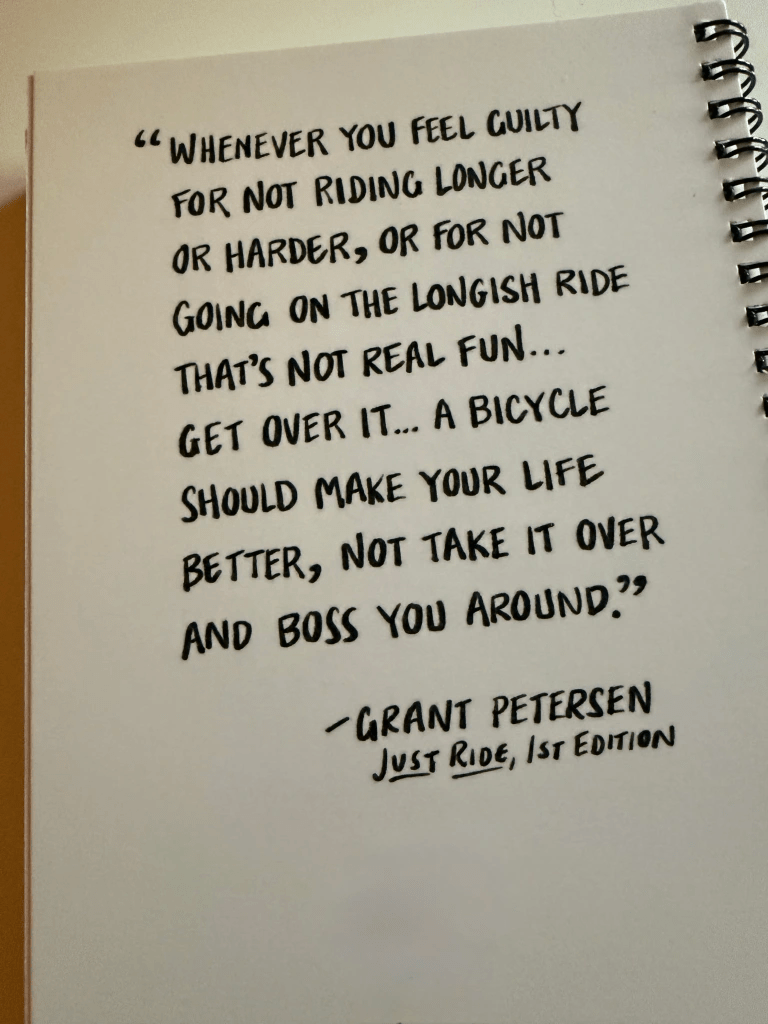 “WHENEVER YOU FEEL GUILTY
FOR NOT RIDING LONGER
OR HARDER, OR FOR NOT
GOING ON THE LONGISH RIDE
THAT'S NOT REAL FUN...
GET OVER IT... A BICYCLE
SHOULD MAKE YOUR LIFE
BETTER, NOT TAKE IT OVER
AND BOSS YOU AROUND.”
—GRANT PETERSEN
JUST RIDE, 1ST EDITION